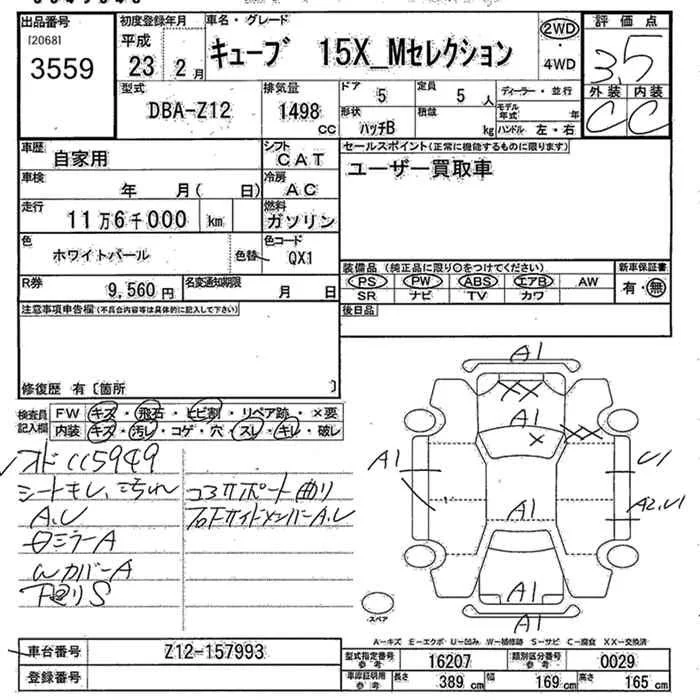 出品番号
[2068]
3559
初度登録年月
平成
23 年 2 月
車名・グレード
キューブ 15X_Mセレクション
2WD
・
4WD
評価点
3.5
外装 内装
C C
型式
DBA-Z12
排気量
1498 cc
ドア
5
定員
5 人
形状
ハッチB
積載
kg
ディーラー・並行
モデル年式 年
ハンドル 左・右
車歴
自家用
シフト
CAT
車検
年 月( 日)
冷房
AC
走行
11万6千000 km
燃料
ガソリン
色
ホワイトパール
色替
色コード
QX1
R券
9,560 円
名変通知期限
月 日
セールスポイント(正常に機能するものに限ります)
ユーザー買取車
装備品 (純正品に限り○をつけてください)
PS PW ABS エアB AW
SR ナビ TV カワ
新車保証書
有・無
後日品
注意事項申告欄(不具合内容等は具体的に記入して下さい)
修復歴 有〔箇所 〕
検査員記入欄
FW キズ・飛石・ヒビ割・リペア跡・×要
内装 キズ・汚レ・コゲ・穴・スレ・キレ・破レ
シートキレ、
A.U
コアサポート曲り
ロミラーA
WカバーA
下廻りS
A1
XX
A1
X
XX
A1
U1
A2.U1
A1
A1
A1
スペア
A-キズ E-エクボ U-凹み W-補修跡 S-サビ C-腐食 XX-交換済
車台番号
Z12-157993
登録番号
型式指定番号 参考
16207
類別区分番号 参考
0029
車庫証明用 参考
長さ 389 cm 幅 169 cm 高さ 165 cm